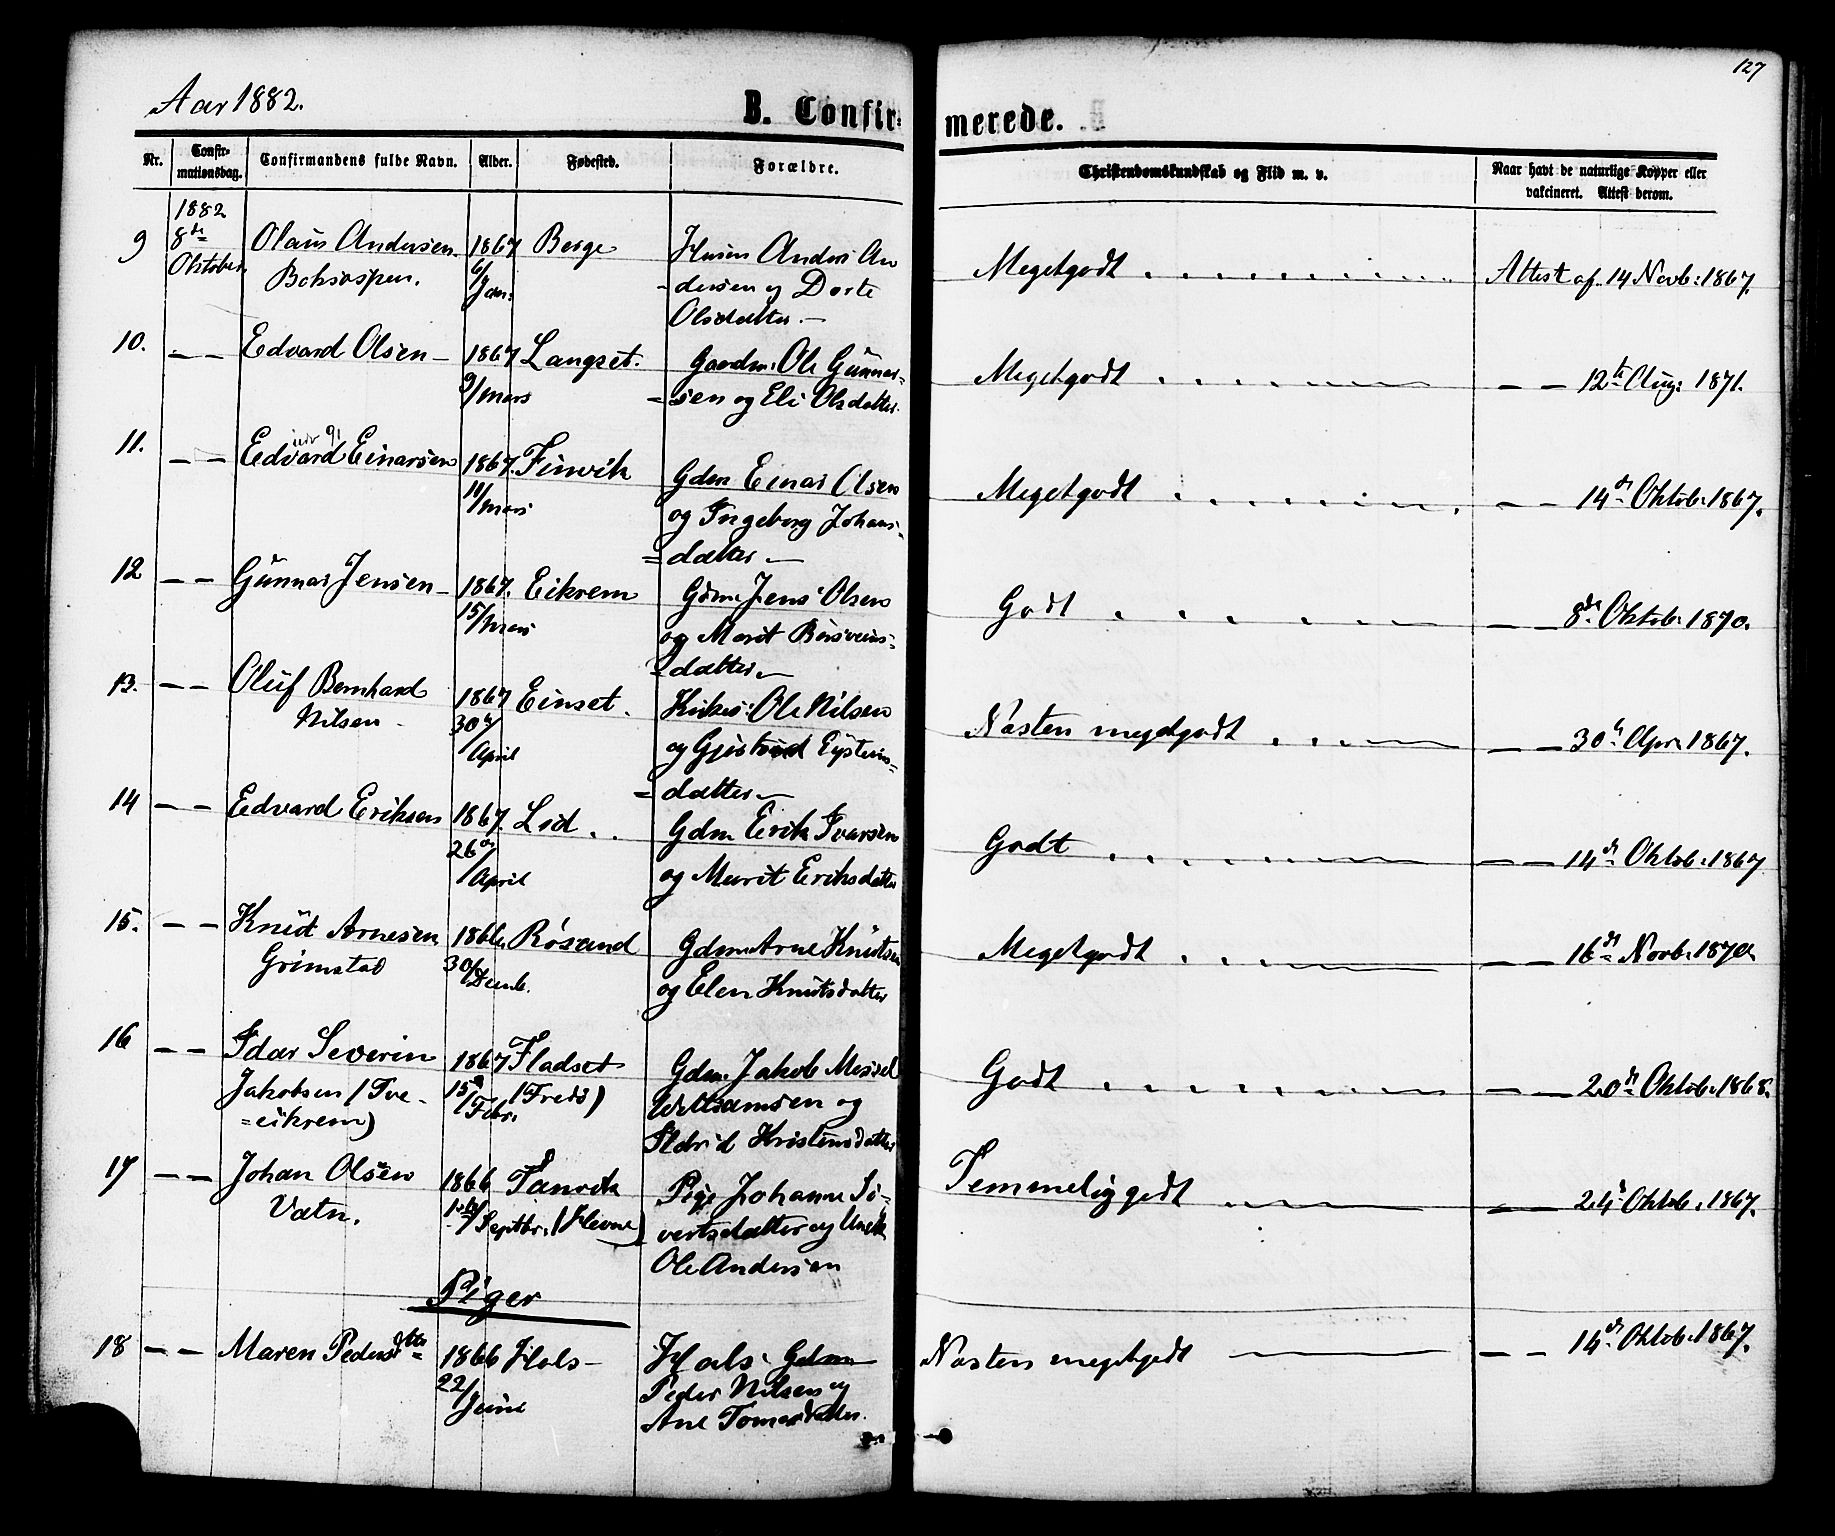 127
Aar 1882.
B. Confirmerede.
Nr. Confirmationsdag. Confirmandens fulde Navn. Alder. Fødested. Forældre. Christendomskundskab og Flid m. v. Naar havt de naturlige Kopper eller vakcineret. Attest derom.
9 1882 8de Oktober Olaus Andersen 1867 Berge Anders An
6/Jan: dersen og Dorte
Olsdatter. —
Megetgodt Attest af 14 Novb: 1867.
10. — — Edvard Olsen — 1867 Langset. Gaardm: Ole Gunnar-
9/Mars sen og Eli Olsdatter.
Megetgodt — — 12te Aug: 1871.
11. — — Edvard Einarsen 1867. Gdm Einar Olsen
11/Mars og Ingeborg Johans-
datter —
Megetgodt — — 14de Oktob. 1867.
12 — — Gunnar Jensen — 1867. Eikrem Gdm. Jens Olsen
15/Mars og Marit
datter —
Godt — — 8de Oktob. 1870.
13. — — Oluf Bernhard 1867 Einset. Ole Nilsen
Nilsen 30de/April og Eystens-
datter —
Næsten megetgodt — — 30te Apr. 1867.
14 — — Edvard Eriksen 1867. Gdm Erik Ivarsen
26de/April og Marit Eriksdatter
Godt — — 14de Oktob. 1867
15. — — Knut Arnesen 1866. Røsand Gdm. Arne Knutsen
Grimstad 30/Decemb. og Elen Knutsdatter
Megetgodt — — 16de Novb. 1870
16 — — Idar Severin 1867 Fladset Gdm. Jakob
Jakobsen (Tve- 15de/Febr. (Fredø) og
=eikrem) Kristensdatter
Godt — — 20de Oktob. 1868.
17 — — Johan Olsen 1866 Pige Johanne Si-
Vatn. Septbr. (Hevne) vertsdatter og Unek
Ole Andersen
Temmelig godt — — 24de Oktob. 1867.
Piger
18 — — Maren Pedersdtr 1866 Hals — Hals Gdm
22/Juni Peder Nilsen og
Ane
Næsten megetgodt — — 14de Oktob. 1867.